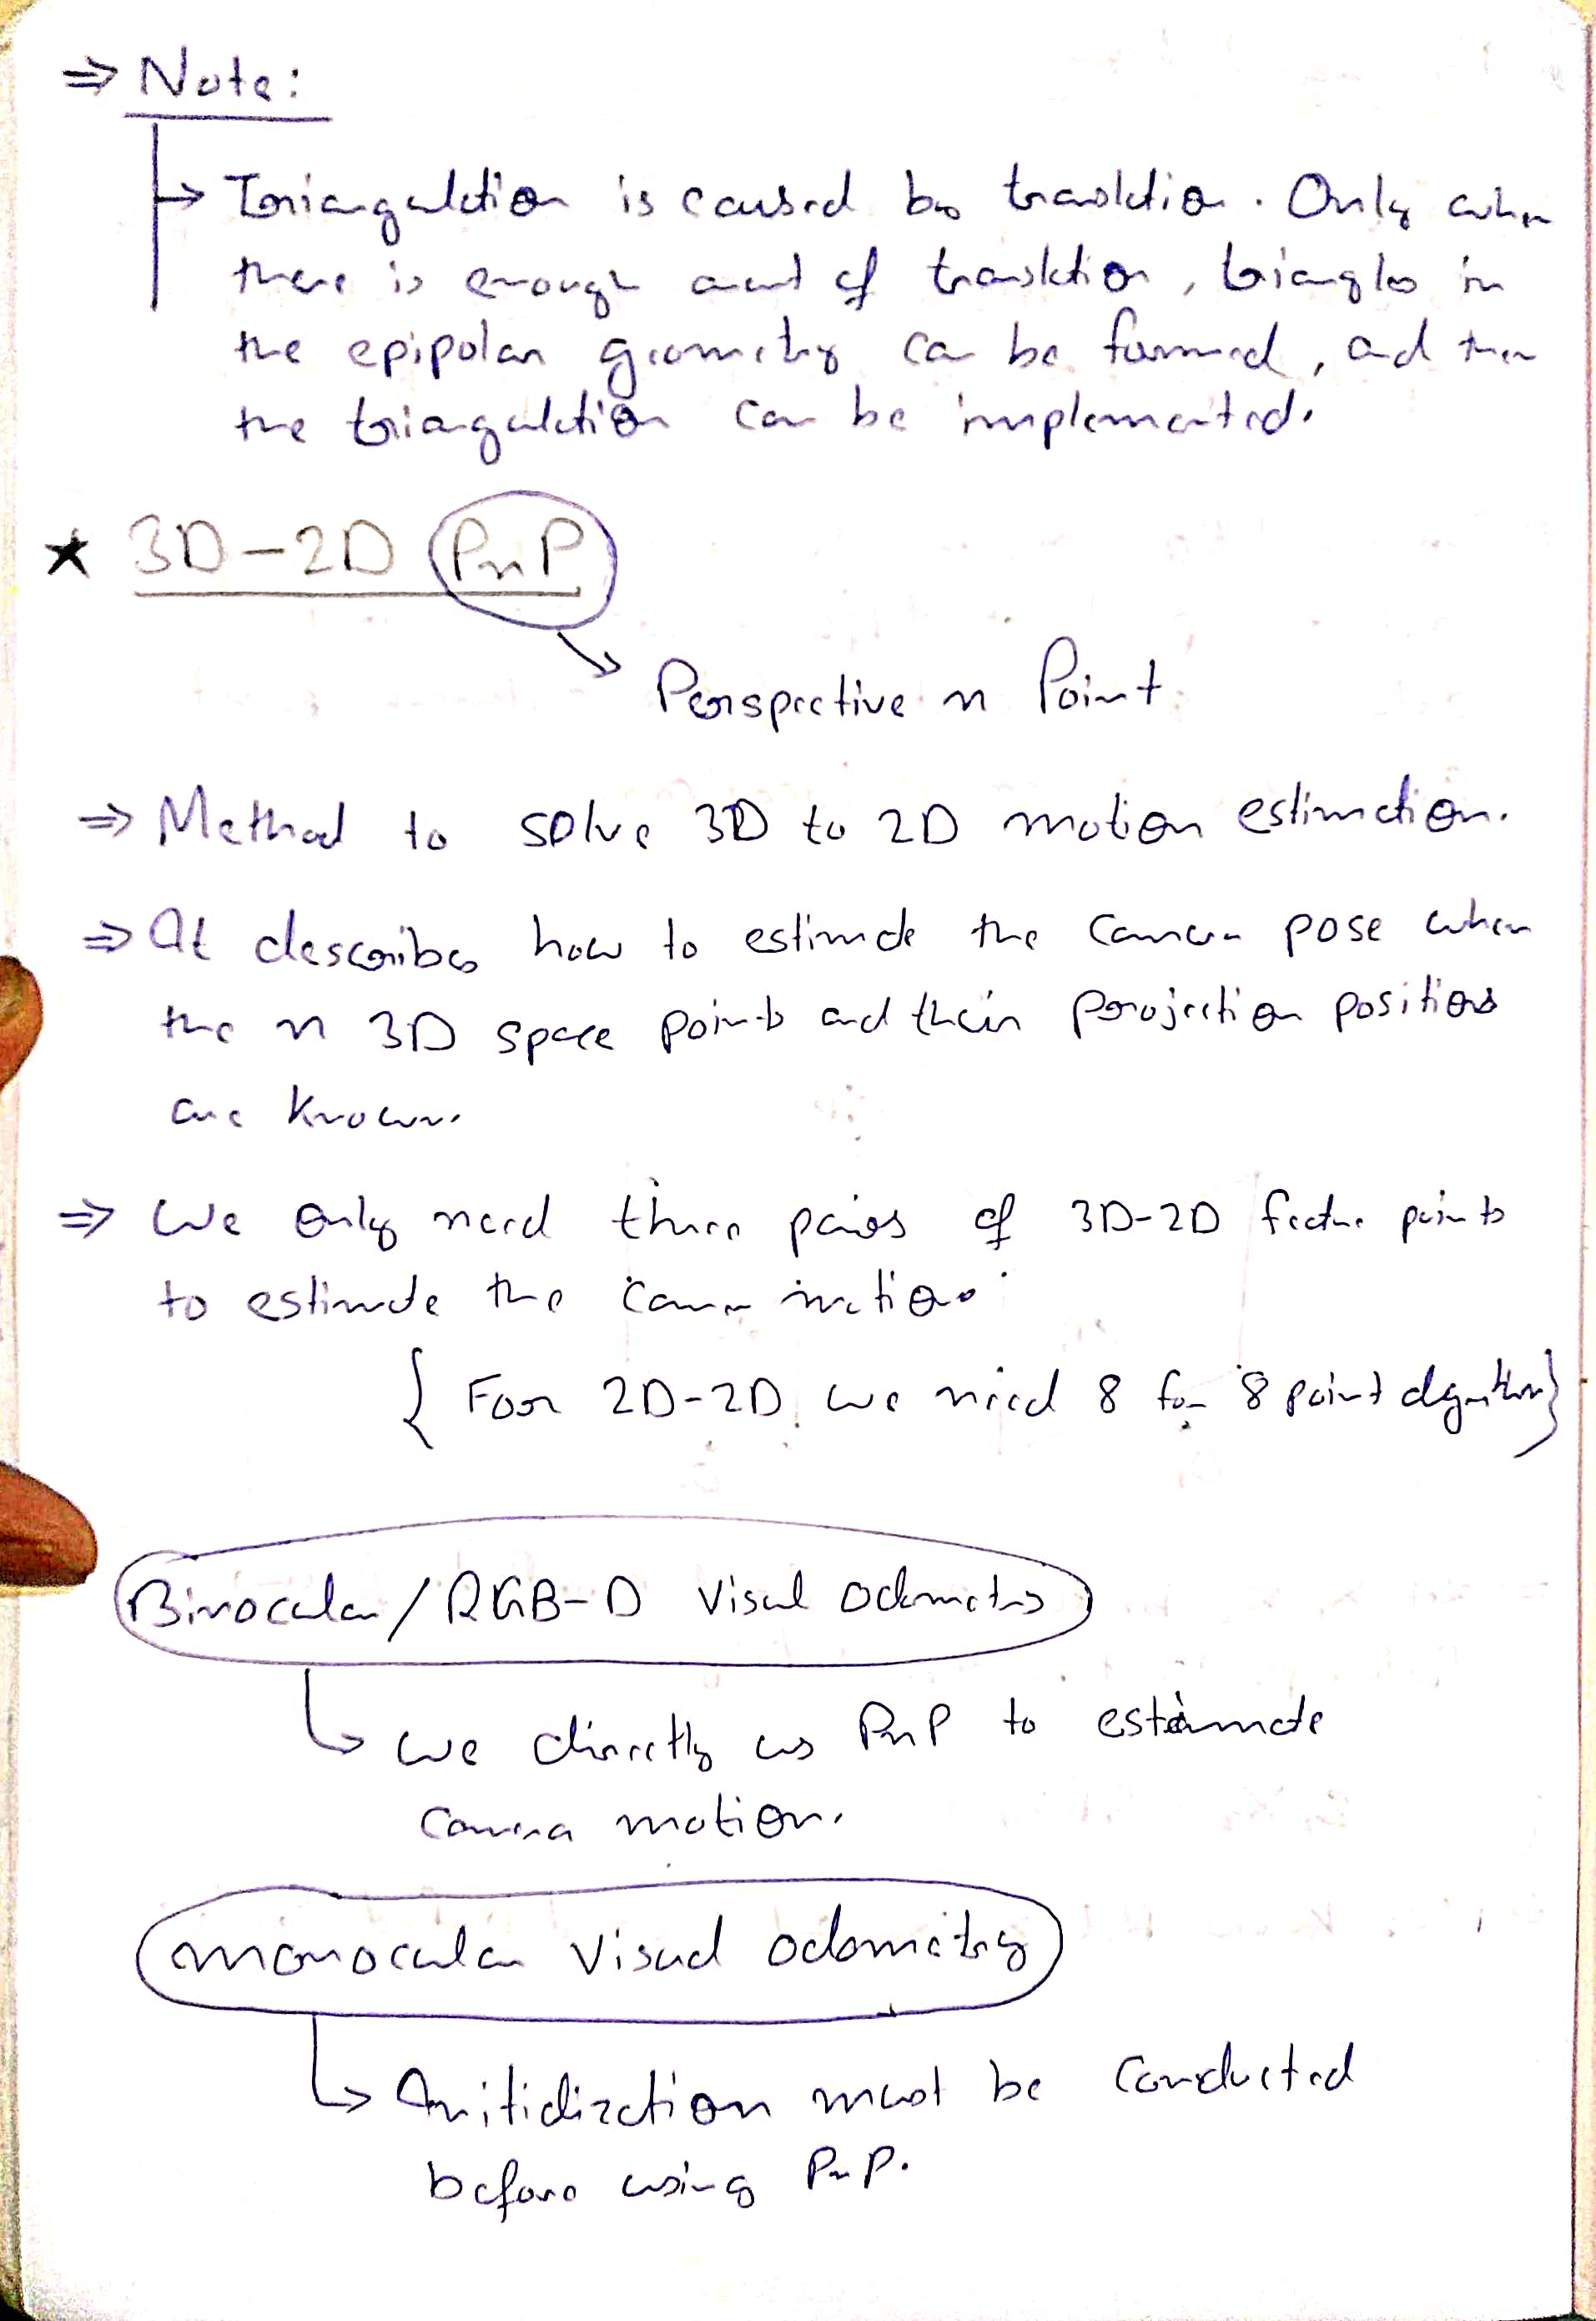 ⇒ Note:
→ Triangulation is caused by translation. Only when
there is enough amount of translation, triangles in
the epipolar geometry can be formed, and then
the triangulation can be implemented.
★ 3D-2D PnP
Perspective n Point
⇒ Method to solve 3D to 2D motion estimation.
⇒ It describes how to estimate the camera pose when
the n 3D space points and their projection positions
are known.
⇒ We only need three pairs of 3D-2D feature points
to estimate the camera motion.
{ For 2D-2D we need 8 for 8 point algorithm}
Binocular/RGB-D Visual Odometry
↳ We directly use PnP to estimate
camera motion.
monocular visual odometry
↳ Initialization must be conducted
before using PnP.